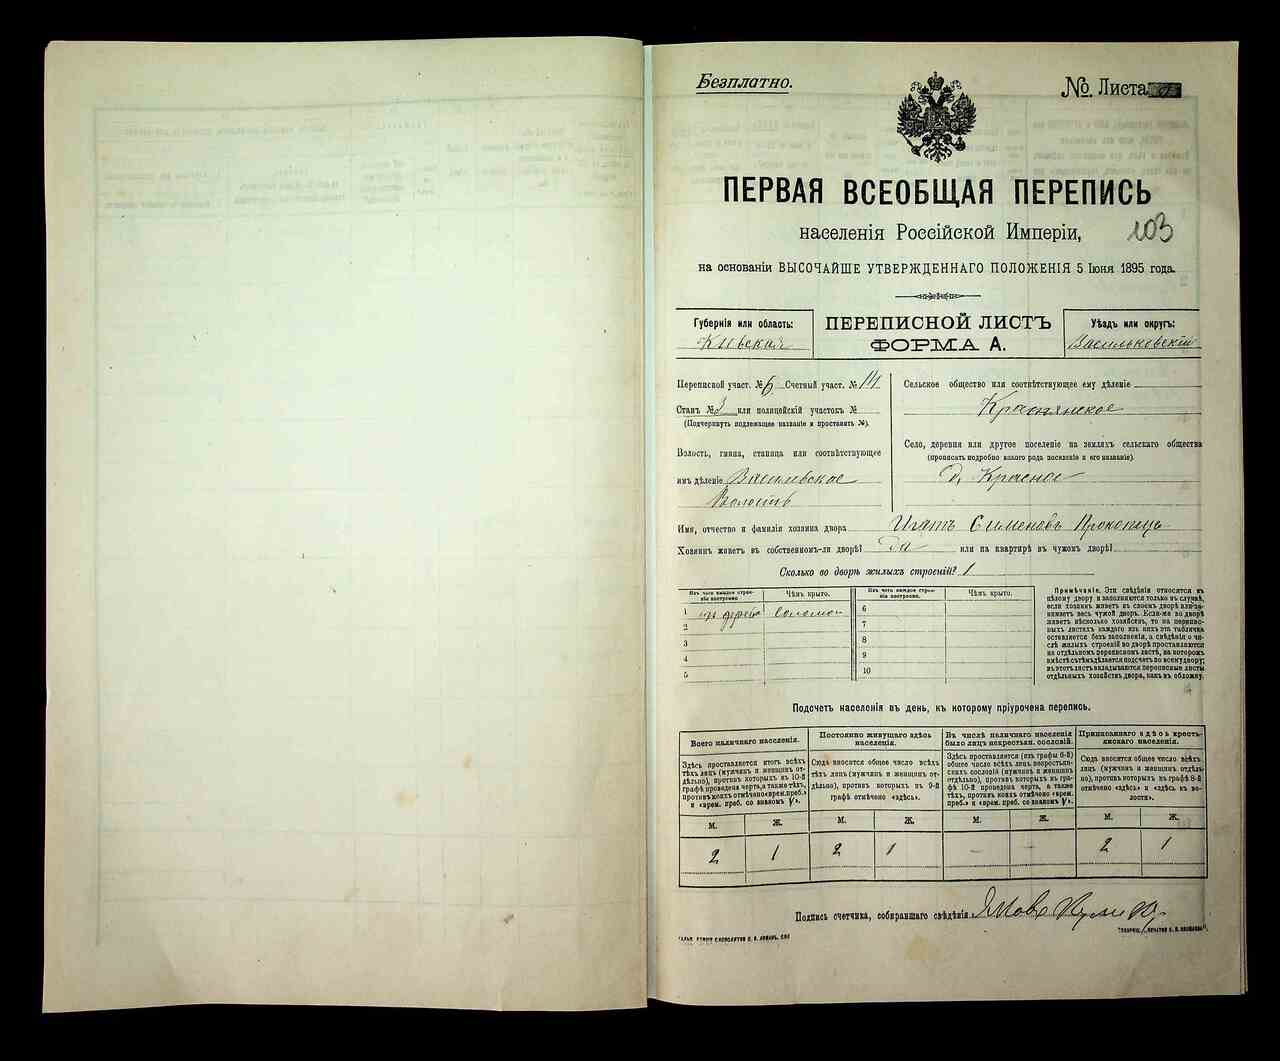 Безплатно.
№. Листа
ПЕРВАЯ ВСЕОБЩАЯ ПЕРЕПИСЬ
населенія Россійской Имперіи,
103
на основаніи ВЫСОЧАЙШЕ УТВЕРЖДЕННАГО ПОЛОЖЕНІЯ 5 Іюня 1895 года.
Губернія или область:
Киевская
ПЕРЕПИСНОЙ ЛИСТЪ
ФОРМА А.
Уѣздъ или округъ:
Васильковскій
Переписной участ. № 6 Счетный участ. № 14
Станъ № 3 или полицейскій участокъ №
(Подчеркнуть подлежащее названіе и проставить №).
Волость, гмина, станица или соотвѣтствующее
имъ дѣленіе Василевское
Волость
Сельское общество или соотвѣтствующее ему дѣленіе
Краснянское
Село, деревня или другое поселеніе на земляхъ сельскаго общества
(прописать подробно какого рода поселеніе и его названіе).
д. Красное
Имя, отчество и фамилія хозяина двора Игатъ Сименовъ Прокопецъ
Хозяинъ живетъ въ собственномъ-ли дворѣ? Да или на квартирѣ въ чужомъ дворѣ?
Сколько во дворѣ жилыхъ строеній? 1
Изъ чего каждое строеніе построено.
Чѣмъ крыто.
Изъ чего каждое строеніе построено.
Чѣмъ крыто.
1 изъ дерева Соломой
2
3
4
5
6
7
8
9
10
Примѣчаніе. Эти свѣдѣнія относятся къ
цѣлому двору и заполняются только въ случаѣ,
если хозяинъ живетъ въ своемъ дворѣ или занимаетъ
весь чужой дворъ. Если-же во дворѣ
живетъ нѣсколько хозяйствъ, то на переписныхъ
листахъ каждаго изъ нихъ эта табличка
оставляется безъ заполненія, а свѣдѣнія о числѣ
жилыхъ строеній во дворѣ проставляются
на отдѣльномъ переписномъ листѣ, на которомъ
вмѣстѣ съ тѣмъ дѣлается подсчетъ по всему двору;
въ этотъ листъ вкладываются переписные листы
отдѣльныхъ хозяйствъ двора, какъ въ обложку.
Подсчетъ населенія въ день, къ которому пріурочена перепись.
Всего наличнаго населенія.
Постоянно живущаго здѣсь населенія.
Въ числѣ наличнаго населенія было лицъ некрестьян. сословій.
Приписаннаго здѣсь крестьянскаго населенія.
Здѣсь проставляется итогъ всѣхъ
тѣхъ лицъ (мужчинъ и женщинъ отдѣльно),
противъ которыхъ въ 10-й
графѣ проведена черта, а также тѣхъ,
противъ коихъ отмѣчено «врем. преб.»
и «врем. преб. со знакомъ V».
Сюда вносится общее число всѣхъ
тѣхъ лицъ (мужчинъ и женщинъ отдѣльно),
противъ которыхъ въ 9-й
графѣ отмѣчено «здѣсь».
Здѣсь проставляется (изъ графы 6-й)
общее число всѣхъ лицъ некрестьянскихъ
сословій (мужчинъ и женщинъ
отдѣльно), противъ которыхъ въ графѣ
10-й проведена черта, а также
тѣхъ, противъ коихъ отмѣчено «врем.
преб.» и «врем. преб. со знакомъ V».
Сюда вносится общее число всѣхъ
лицъ (мужчинъ и женщинъ отдѣльно),
противъ которыхъ въ графѣ 8-й
отмѣчено «здѣсь» и «здѣсь къ волости».
М. Ж. М. Ж. М. Ж. М. Ж.
2 1 2 1 — — 2 1
Подпись счетчика, собиравшаго свѣдѣнія.